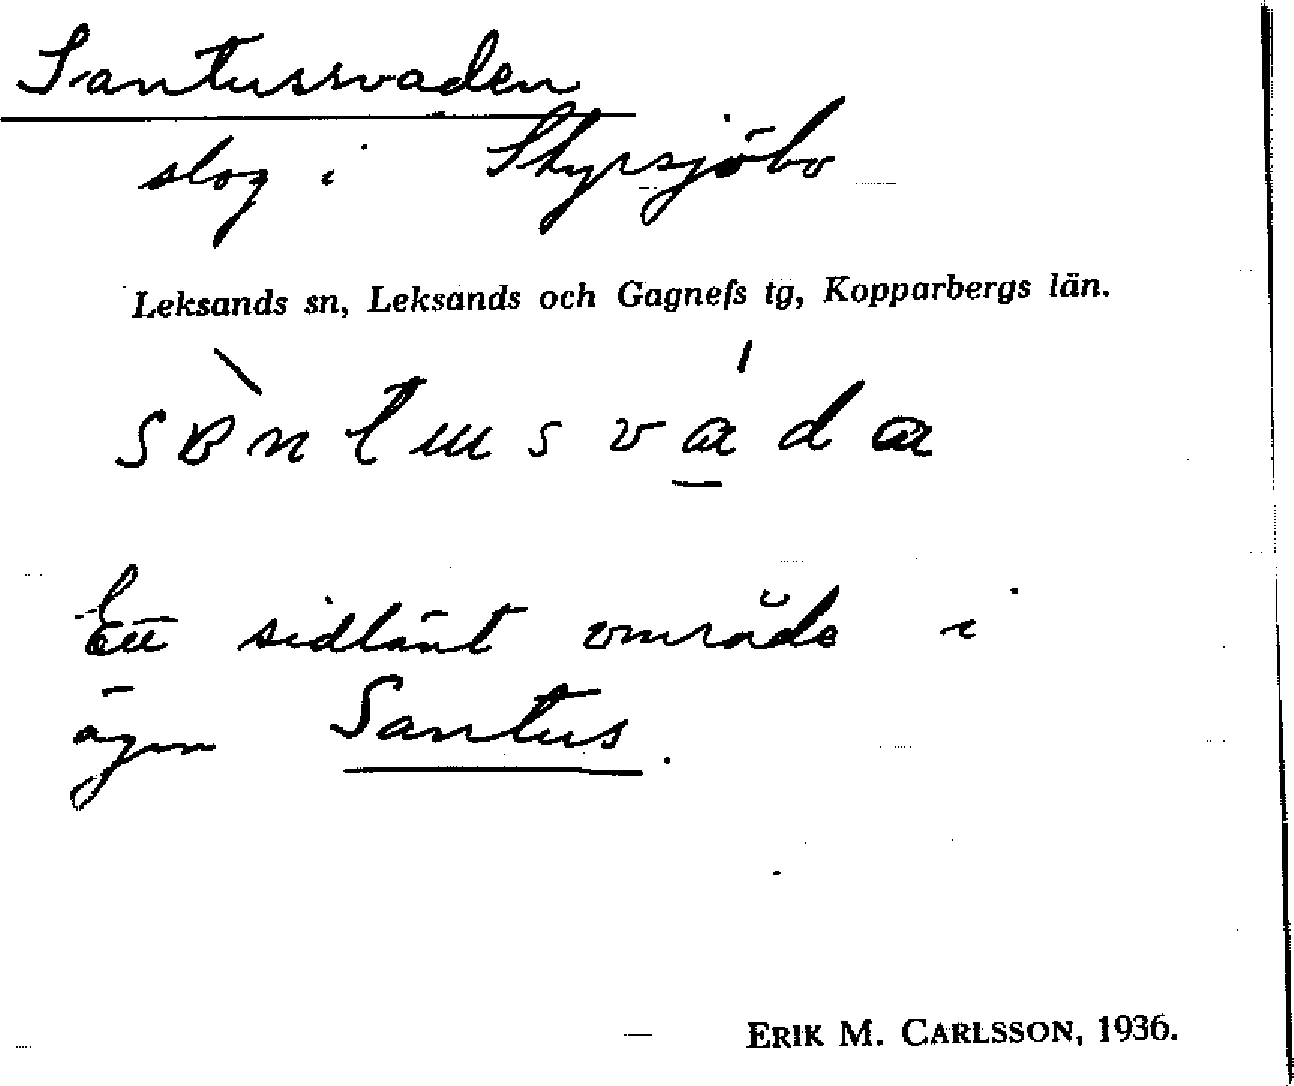 Santussvaden
slog i Styrsjöbo
Leksands sn, Leksands och Gagnefs tg, Kopparbergs län.
Ett sidlänt område i
ägan Santus.
ERIK M. CARLSSON, 1936.